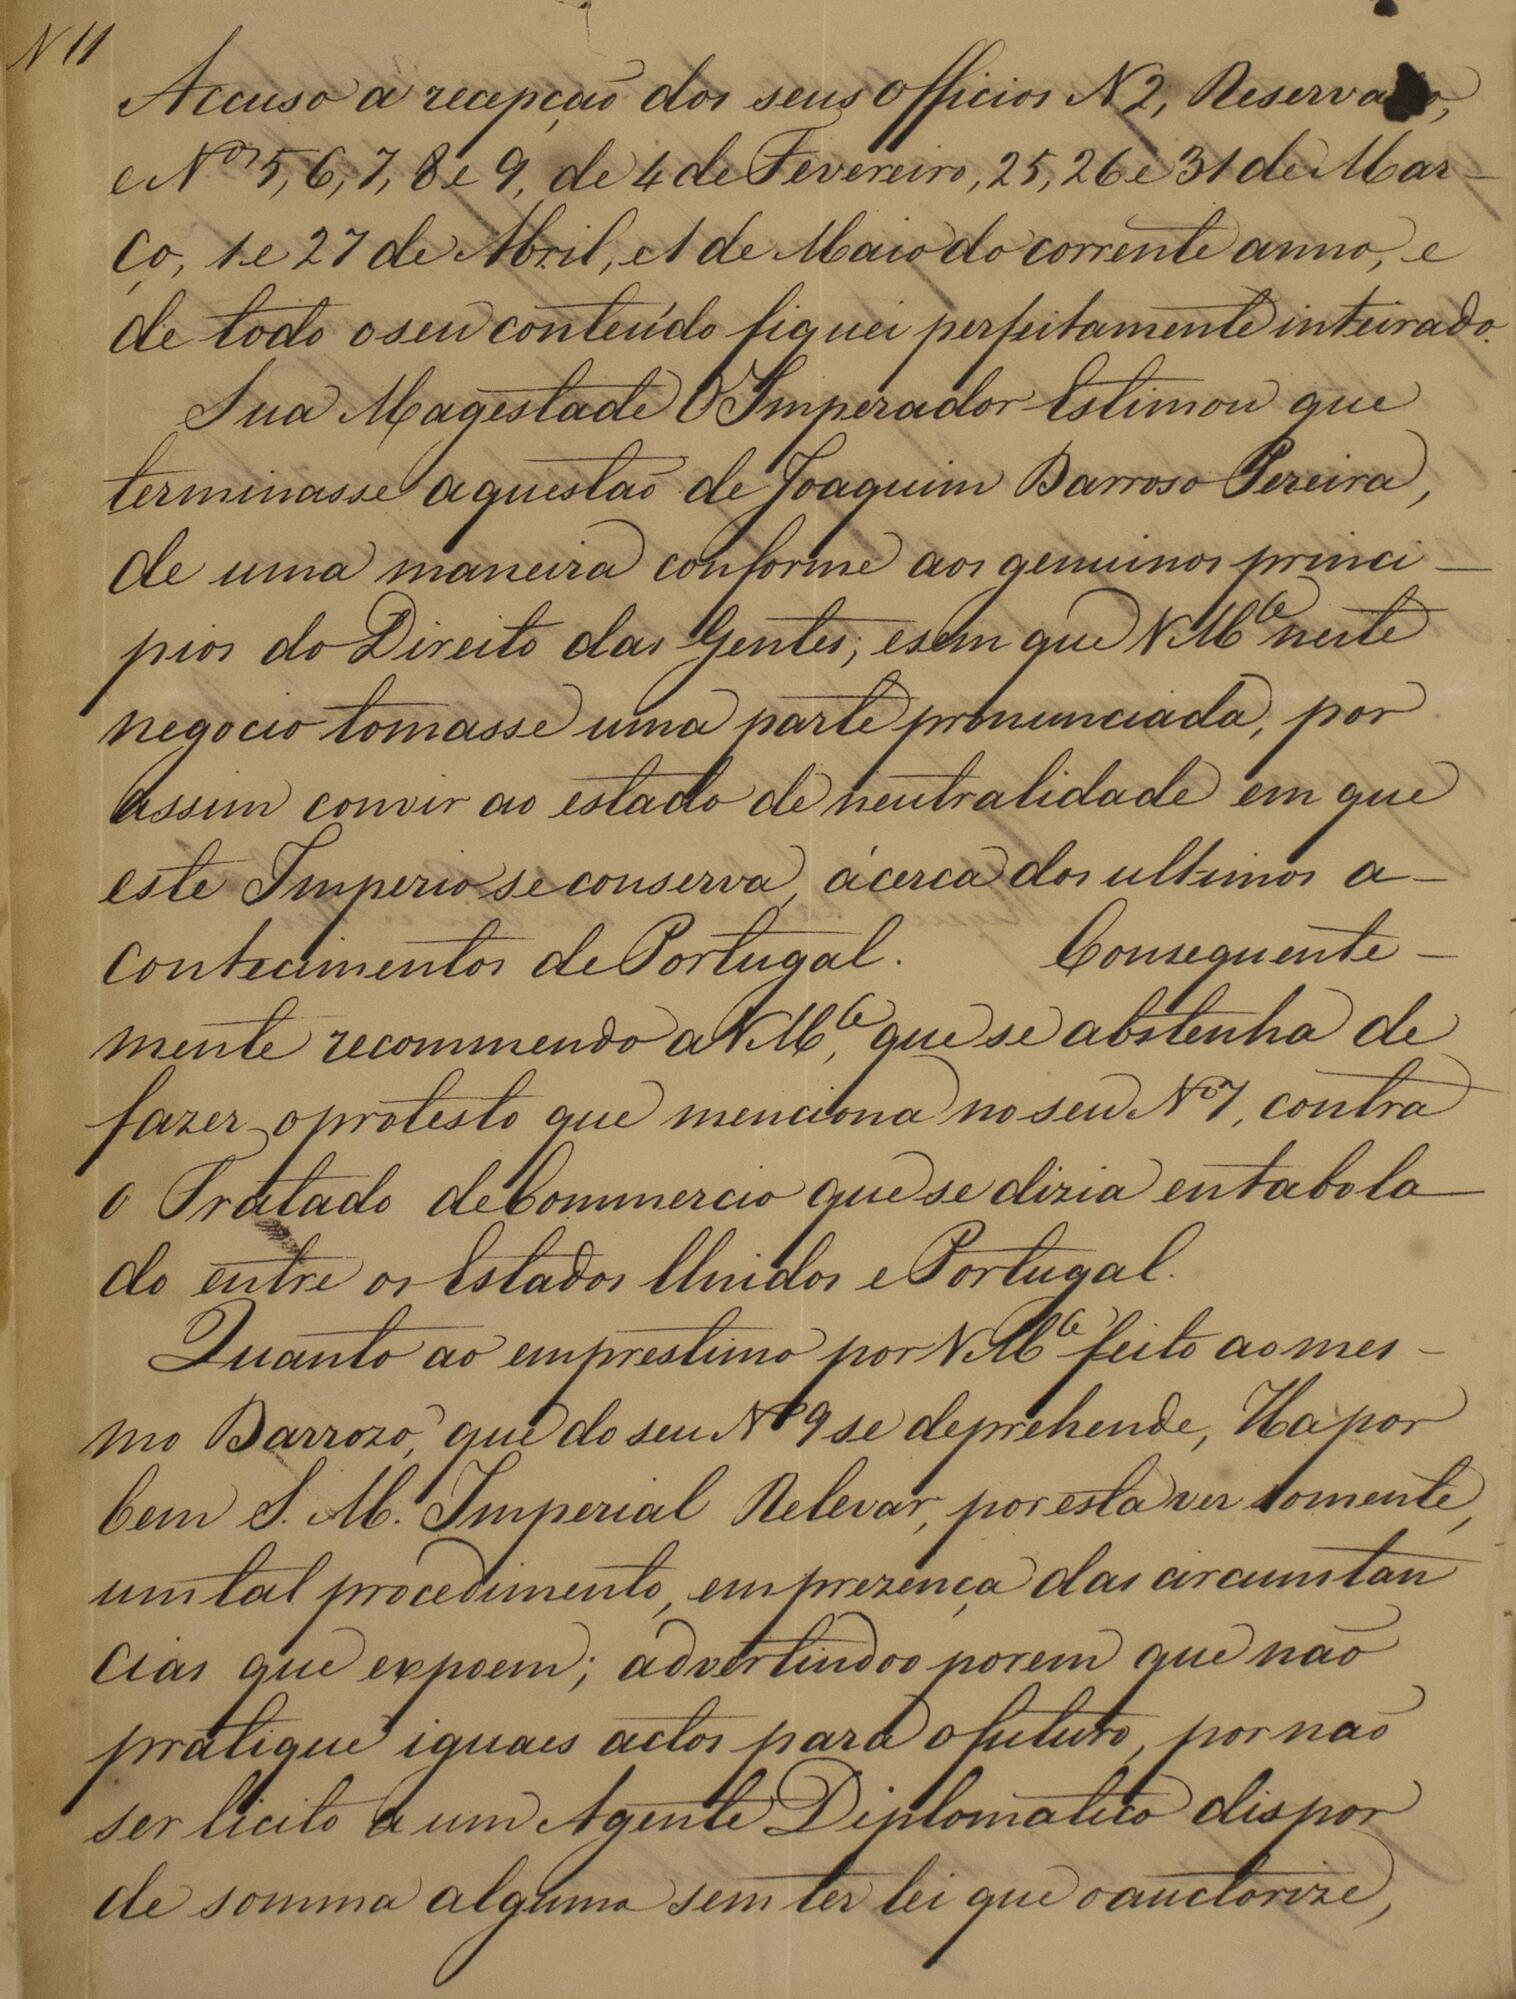 N 11
Accuso a recepção dos seus Officios N 2, Reservado,
e Nos 5, 6, 7, 8 e 9, de 4 de Fevereiro, 25, 26 e 31 de Mar-
ço, 1 e 27 de Abril, e 1 de Maio do corrente anno, e
de todo o seu conteúdo fiquei perfeitamente inteirado.
Sua Magestade O Imperador Estimou que
terminasse a questão de Joaquim Barroso Pereira,
de uma maneira conforme aos genuinos princi-
pios do Direito das Gentes; e sem que V. Mce neste
negocio tomasse uma parte pronunciada, por
assim convir ao estado de neutralidade em que
este Imperio se conserva, ácerca dos ultimos a-
contecimentos de Portugal. Consequente-
mente recommendo a V. Mce, que se abstenha de
fazer o protesto que menciona no seu No 7, contra
o Tratado de Commercio que se dizia entabola-
do entre os Estados Unidos e Portugal.
Quanto ao emprestimo por V. Mce feito ao mes-
mo Barrozo, que do seu No 9 se deprehende, Ha por
bem S. M. Imperial Relevar, por esta vez somente,
um tal procedimento, em prezença das circumstan
cias que expoem; advertindo o porem que não
pratique iguaes actos para o futuro, por não
ser licito a um Agente Diplomatico dispor
de somma alguma sem ter lei que o auctorize,